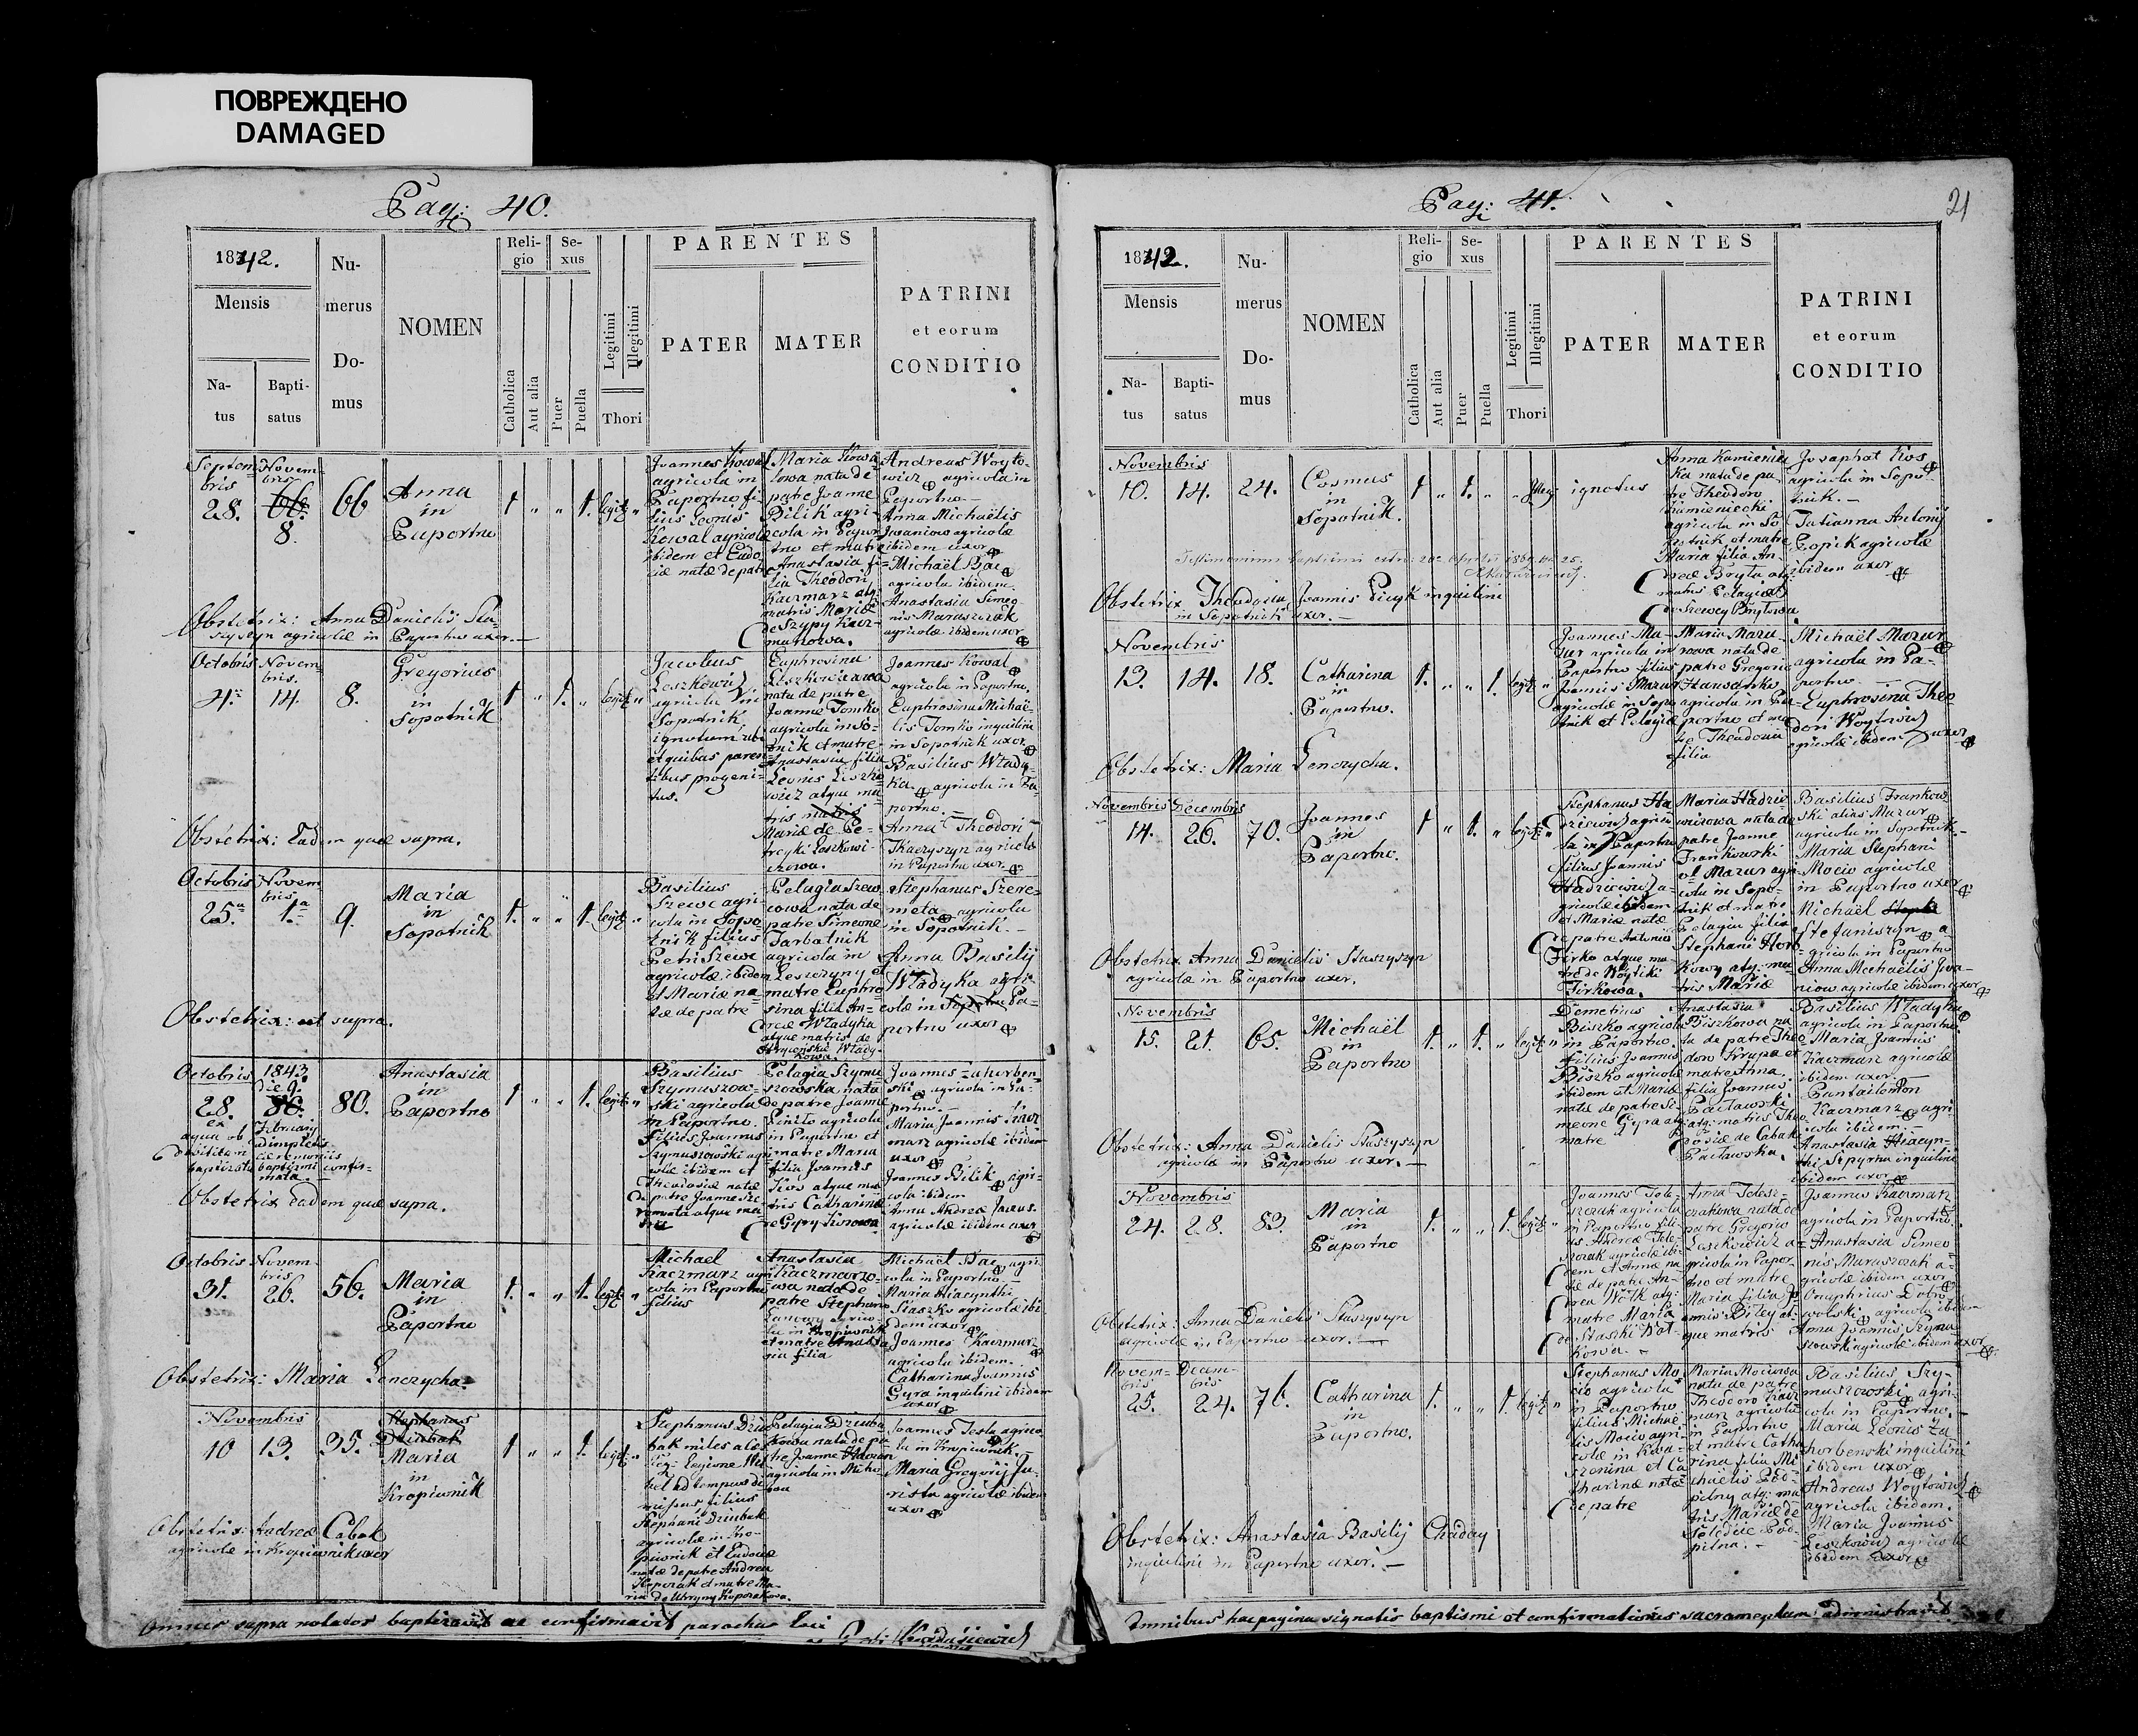 ПОВРЕЖДЕНО
DAMAGED
Pag: 40.
1842.
Mensis
Na-
tus
Bapti-
satus
Nu-
merus
Do-
mus
NOMEN
Reli-
gio
Catholica
Aut alia
Se-
xus
Puer
Puella
Legitimi
Illegitimi
Thori
PARENTES
PATER
MATER
PATRINI
et eorum
CONDITIO
Septem
bris
28.
Novem-
bris
8.
66
Anna
in
Paportno
Joannes Kowal
agricola in
Paportno fi-
lius Leonis
Kowal agricolæ
ibidem et Eudo-
ciæ natæ de patre
Maria Kowa-
lowa nata de
patre Joanne
Bilik agri-
cola in Papor-
tno et matre
Anastasia fi-
lia Theodori
Kaczmarz atq:
matris Mariæ
de Szypy Kacz-
marzowa.
Andreas Woyto-
wicz agricola in
Paportno.
Anna Michaëlis
Iwaniow agricolæ
ibidem uxor
Michaël Bac
agricola ibidem.
Anastasia Simeo-
nis Maruszczak
agricolæ ibidem uxor
Obstetrix: Anna Danielis Sta-
szyszyn agricolæ in Paportno uxor.
Octobris
4.
Novem-
bris.
14.
8.
Gregorius
in
Sopotnik
Jacobus
Leszkowicz
agricola in
Sopotnik,
ignotum ubi
et quibus paren-
tibus progeni-
tus.
Euphrosina
Leszkowiczowa
nata de patre
Joanne Tomko
agricola in So-
tnik et matre
Anastasia filia
Leonis Leszko-
wicz atque ma-
tris
Mariæ de Pe-
tryki Leszkowi-
czowa.
Joannes Kowal
agricola in Paportno.
Euphrosina Michaë-
lis Tomko inquilini
in Sopotnik uxor
Basilius Wlady-
ka agricola in Pa-
portno.
Anna Theodori
Tkaczyszyn agricolæ
in Paportno uxor
Obstetrix: Eadem quæ supra.
Octobris
25a
Novem
bris
1.a
9.
Maria
in
Sopotnik
Basilius
Szewc agri-
cola in Sopo-
tnik filius
Petri Szewc
agricolæ ibidem
et Mariæ na-
tæ de patre
Pelagia Szew-
cowa nata de
patre Simeone
Tarbatnik
agricola in
Leszczyny et
matre Euphro-
sina filia An-
dreæ Wladyka
atque matris de
Wlady-
kowa.
Stephanus Szere-
meta agricola
in Sopotnik.
Anna Basilij
Wladyka agri-
colæ in Pa-
portno uxor
Obstetrix: ut supra.
Octobris
28.
1843
Die 9
February
80.
Anastasia
in
Paportno
Basilius
Szymuszow-
ski agricola
in Paportno.
Filius Joannis
Szymuszowski agri-
colæ ibidem et
Theodosiæ natæ
de patre Joanne Sze-
remeta atque ma-
tris
Pelagia Szymu-
szowska nata
de patre Joanne
Pinilo agricola
in Paportno et
matre Maria
filia Joannis
Kos atque ma-
tris Catharinæ
de Gyry Kosowa
Joannes Zahorben-
ski agricola in Pa-
portno.
Maria Joannis Kacz-
marz agricolæ ibidem
uxor
Joannes Bilik agri-
cola ibidem
Anna Andreæ Jacus.
agricolæ ibidem uxor
Obstetrix Eadem quæ supra.
Octobris
31.
Novem
bris
26.
56.
Maria
in
Paportno
Michael
Kaczmarz agri-
cola in Paportno
filius
Anastasia
Kaczmarzo-
wa nata de
patre Stephano
agrico-
la in Kropiwnik
et matre Anasta-
sia filia
Michaël Bac agri-
cola in Paportno
Maria Hiacynthi
Staszko agricolæ ibi-
dem uxor
Joannes Kaczmarz
agricola ibidem.
Catharina Joannis
Gyra inquilini ibidem
uxor
Obstetrix: Maria Lenczycha.
Novembris
10
13.
35.
Stephanus
Dziubak
Maria
in
Kropiwnik
Stephanus Dziu-
bak miles alæ
ad tempus di-
missus filius
Stephani Dziubak
agricolæ in Kro-
piwnik et Eudociæ
natæ de patre Andrea
Koporak et matre Ma-
ria de Uhryny Koporakowa.
Pelagia Dziuba-
kowa nata de pa-
tre Joanne
agricola in
Joannes Testa agrico-
la in Kropiwnik.
Maria Gregorij Ja-
resta agricolæ ibidem
uxor
Obstetrix: Andreæ Cabak
agricolæ in Kropiwnik uxor
Omnes supra notatos baptizavit ac confirmavit parochus loci
Pag: 41.
21
1842.
Mensis
Na-
tus
Bapti-
satus
Nu-
merus
Do-
mus
NOMEN
Reli-
gio
Catholica
Aut alia
Se-
xus
Puer
Puella
Legitimi
Illegitimi
Thori
PARENTES
PATER
MATER
PATRINI
et eorum
CONDITIO
Novembris
10.
14.
24.
Cosmus
in
Sopotnik.
Illeg:
ignotus
Anna Kamieniec-
ka nata de pa-
tre Theodoro
Kamieniecki
agricola in So-
potnik et matre
Maria filia An-
dreæ Bryta atq:
matris Pelagiæ
de Szewcy Brytowa
Josaphat Kos
agricola in Sopo-
tnik.
Tatianna Antonij
Popik agricolæ
ibidem uxor
Obstetrix Theodosia Joannis Dicyk inquilini
in Sopotnik uxor.
Novembris
13.
14.
18.
Catharina
in
Paportno.
Joannes Ma-
zur agricola in
Paportno filius
Joannis Mazur
agricolæ in Sopo-
tnik et Pelagiæ
Maria Mazu-
rowa nata de
patre Gregorio
agricola in Pa-
portno et ma-
tre Theodosia
filia
Michaël Mazur
agricola in Pa-
portno
Euphrosina Theo-
dori Woytowicz
agricolæ ibidem uxor
Obstetrix: Maria Lenczycha.
Novembris
14.
Decembris
26.
70.
Joannes
in
Paportno.
Stephanus Ha-
dziewicz agrico-
la in Paportno
filius Joannis
Hadziewicz a-
gricolæ ibidem
et Mariæ natæ
de patre Antonio
Firko atque ma-
tre de Woytiki
Firkowa.
Maria Hadzie-
wiczowa nata de
patre Joanne
Frankowski
vel Mazur agri-
cola in Sopo-
tnik et matre
Pelagia filia
Stephani Hor-
kowy atq: ma-
tris Mariæ
Basilius Frankow-
ski alias Mazur
agricola in Sopotnik.
Maria Stephani
Mocio agricolæ
in Paportno uxor
Michaël
Stefaniszyn a-
gricola in Paportno
Anna Michaëlis Iwa-
niow agricolæ ibidem uxor
Obstetrix Anna Danielis Staszyszyn
agricolæ in Paportno uxor.
Novembris
15.
21.
65.
Michaël
in
Paportno
Demetrius
Biszko agricola
in Paportno.
filius Joannis
Biszko agricolæ
ibidem et Mariæ
natæ de patre Si-
meone Gyra atq:
matre
Anastasia
Biszkowa na-
ta de patre Theo-
doro Krupa et
matre Anna.
filia Joannis
Paclawski
atq: matris Theo-
dosiæ de Cabaki
Paclawska.
Basilius Wladyka
agricola in Paportno
Maria Joannis
Kaczmarz agricolæ
ibidem uxor.
Pantaleimon
Kaczmarz agri-
cola ibidem.
Anastasia Hiacyn-
thi Sipyrka inquilini
ibidem uxor
Obstetrix: Anna Danielis Staszyszyn
agricolæ in Paportno uxor.
Novembris
24.
28.
83.
Maria
in
Paportno
Joannes Tele-
szczak agricola
in Paportno fili-
us Andreæ Tele-
szczak agricolæ ibi-
dem et Annæ na-
tæ de patre An-
drea Wolk atq:
matre Maria
de Staszki Wol-
kowa.
Anna Telesz-
czakowa nata de
patre Gregorio
Leszkowicz a-
gricola in Papor-
tno et matre
Maria filia Jo-
annis Biley at-
que matris
Joannes Kaczmarz
agricola in Paportno.
Anastasia Simeo-
nis Maruszczak a-
gricolæ ibidem uxor
Onuphrius Dobro-
wolski agricola ibidem
Anna Joannis Szymu-
szowski agricolæ ibidem uxor
Obstetrix: Anna Danielis Staszyszyn
agricolæ in Paportno uxor.
Novem-
bris
25.
Decem-
bris
24.
76.
Catharina
in
Paportno.
Stephanus Mo-
cio agricola
in Paportno
filius Michaë-
lis Mocio agri-
colæ in Kwa-
szenina et Ca-
tharinæ natæ
de patre
Maria Mociowa
nata de patre
Theodoro Kacz-
marz agricola
in Paportno
et matre Catha-
rina filia Mi-
chaëlis Pod-
pilny atq: ma-
tris Mariæ de
Pod-
pilna.
Basilius Szy-
muszowski agri-
cola in Paportno.
Maria Leonis Za-
horbenski inquilini
ibidem uxor
Andreas Woytowicz
agricola ibidem.
Maria Joannis
Leszkowicz agricolæ
ibidem uxor
Obstetrix: Anastasia Basilij Chaday
inquilini in Paportno uxor.
Omnibus hac pagina signatis baptismi et confirmationis sacramentum administravit